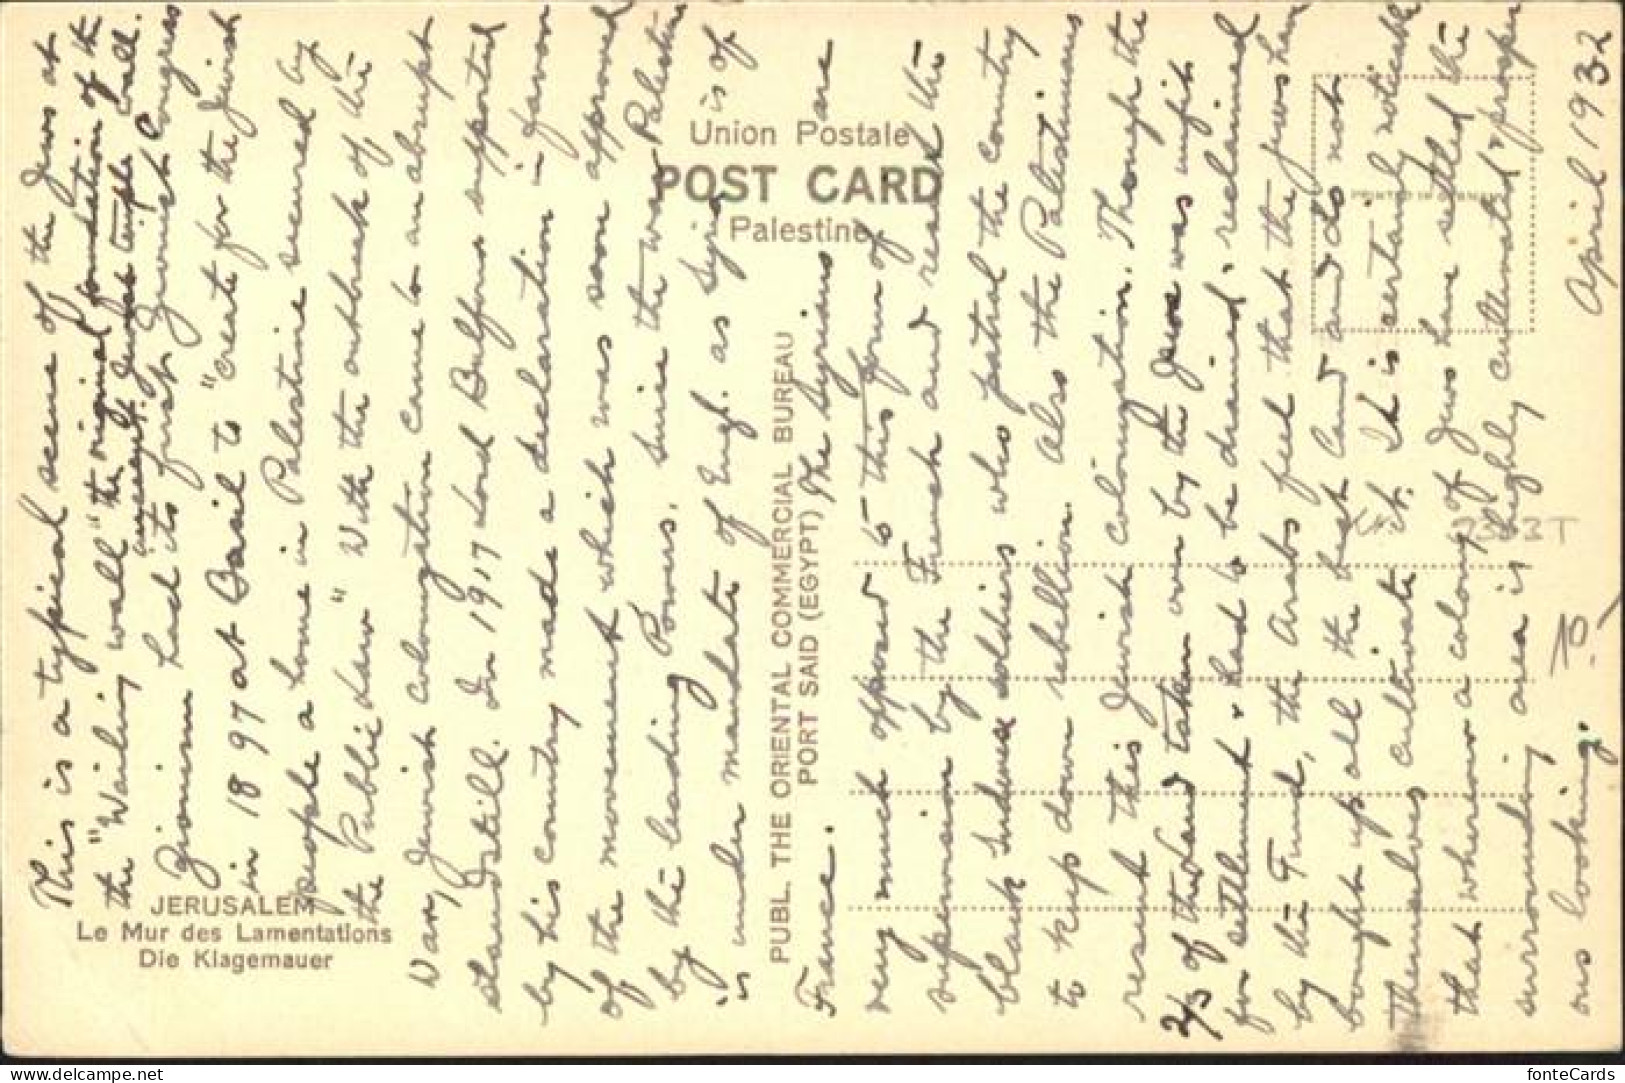 This is a typical scene of the Jews at
the "Wailing wall" the original foundation of the
ancient Jewish temple wall.
Zionism had its first Jewish Congress
in 1897 at Basil to "create for the Jewish
people a home in Palestine secured by
the Public Law" With the outbreak of the
War, Jewish colonization came to an abrupt
standstill. In 1917 Lord Balfour supported
by his country made a declaration in favor
of the movement which was soon approved
by the leading Powers. Since the war Palestine
is under mandate of Engl. as Syria is of
France. The Syrians are
very much opposed to this form of
supervision by the French and resent the
black soldiers who patrol the country
to keep down rebellion. Also the Palestinians
resent this Jewish colonization. Though the
2/3 of the land taken over by the Jews was unfit
for settlement & had to be drained, reclaimed
by the Fund, the Arabs feel that the Jews have
bought up all the best land and do not
themselves cultivate it. It is certainly noticable
that wherever a colony of Jews have settled the
surrounding area is highly cultivated &
ous looking.
April 1932
10.-
JERUSALEM
Le Mur des Lamentations
Die Klagemauer
Union Postale
POST CARD
Palestine
PUBL. THE ORIENTAL COMMERCIAL BUREAU
PORT SAID (EGYPT)
PRINTED IN
delcampe.net
fonteCards